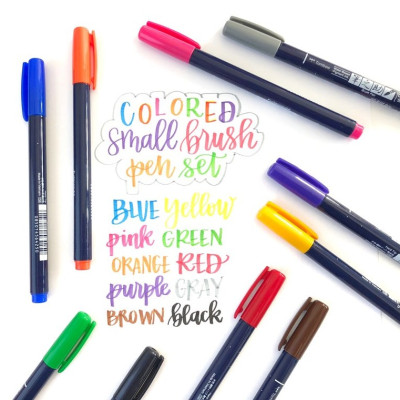 COLORED
small brush
pen set
BLUE yellow
pink GREEN
ORANGE RED
purple GRAY
BROWN black